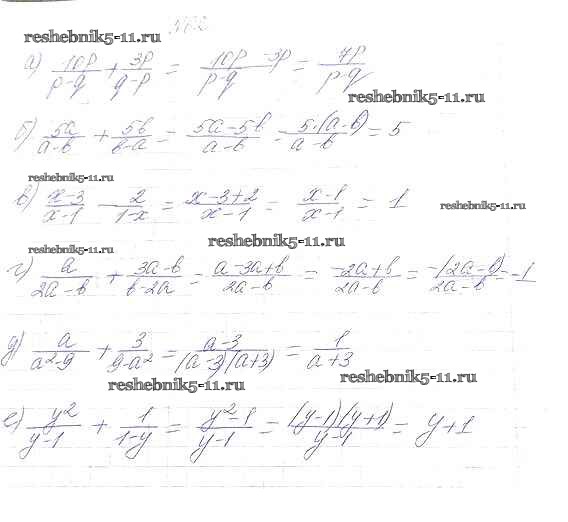 reshebnik5-11.ru
а) 10p/(p-q) + 3p/(q-p) = (10p-3p)/(p-q) = 7p/(p-q)
reshebnik5-11.ru
б) 5a/(a-b) + 5b/(b-a) = (5a-5b)/(a-b) = 5·(a-b)/(a-b) = 5
reshebnik5-11.ru
в) (x-3)/(x-1) - 2/(1-x) = (x-3+2)/(x-1) = (x-1)/(x-1) = 1
reshebnik5-11.ru
reshebnik5-11.ru
reshebnik5-11.ru
г) a/(2a-b) + (3a-b)/(b-2a) = (a-3a+b)/(2a-b) = (-2a+b)/(2a-b) = -(2a-b)/(2a-b) = -1
д) a/(a²-9) + 3/(9-a²) = (a-3)/((a-3)(a+3)) = 1/(a+3)
reshebnik5-11.ru
reshebnik5-11.ru
е) y²/(y-1) + 1/(1-y) = (y²-1)/(y-1) = (y-1)(y+1)/(y-1) = y+1